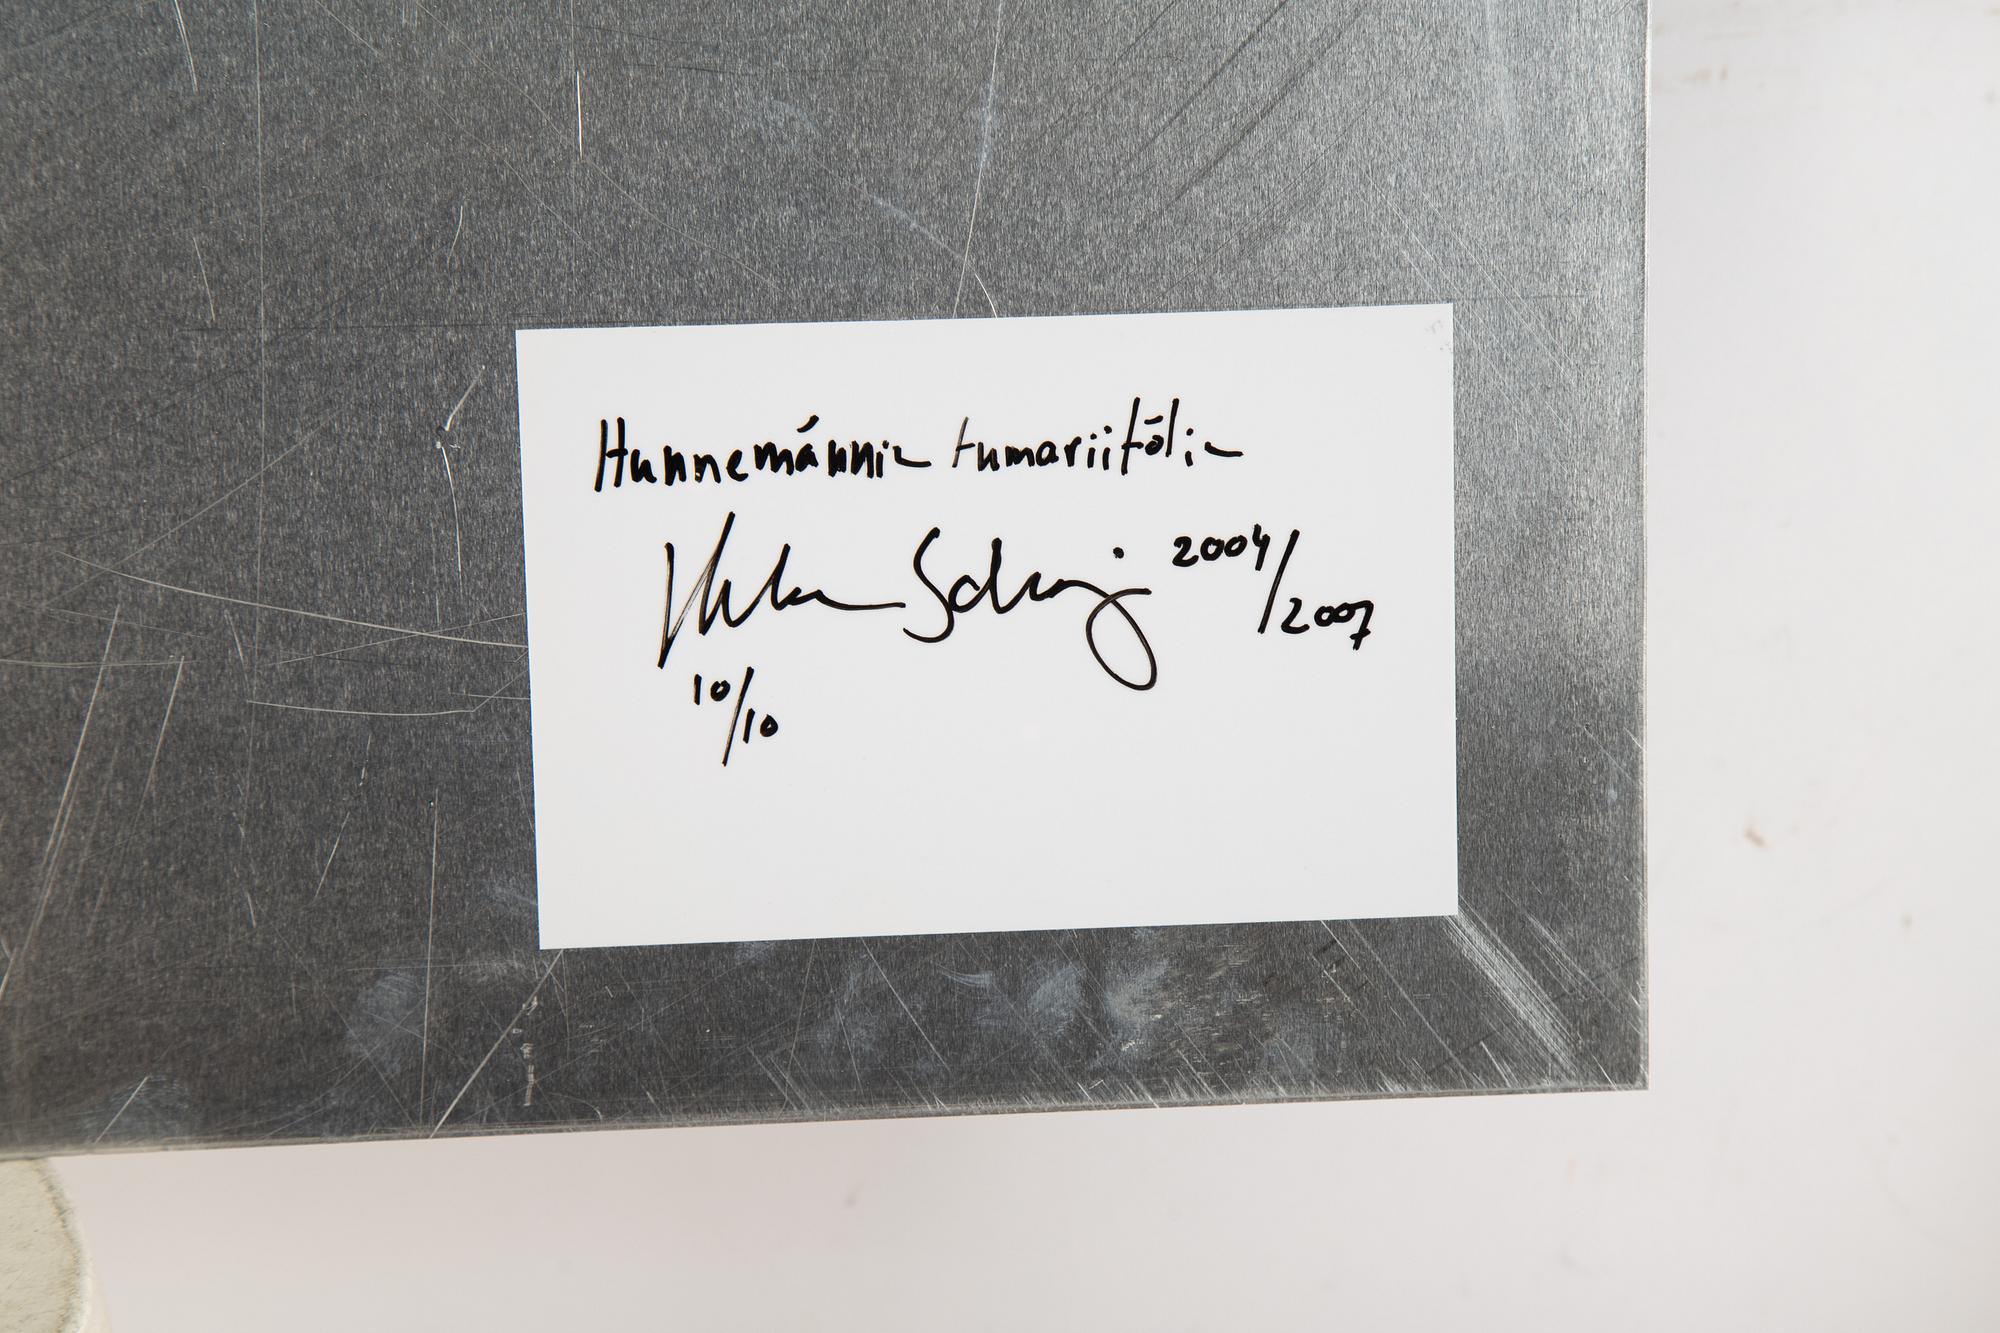 Hunnemánnia fumariifōlia
2004/2007
10/10